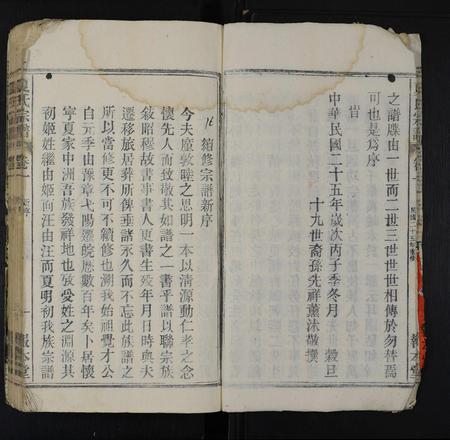 之譜牒由一世而二世三世世世相傳於勿替焉
可也是為序
旹
中華民國二十五年歲次丙子季冬月 穀旦
十九世裔孫先祥薰沐敬撰
續修宗譜新序
今夫慶敦睦之思明一本以清源動仁孝之念
懷先人而致敬其如譜之一書乎譜以聯宗族
敘昭穆故書事書人更書生歿年月日時與夫
遷移旅居葬所俾垂諸永久而不忘此族譜之
所以當修更不可不續修也溯我始祖覺才公
自元季由豫章弋陽遷皖歷數百年矣卜居懷
寧夏家中洲吾族發祥地也攷受姓之淵源其
初姬姓繼由姬而汪由汪而夏明初我族宗譜
夏氏宗譜
卷一
新序
報本堂